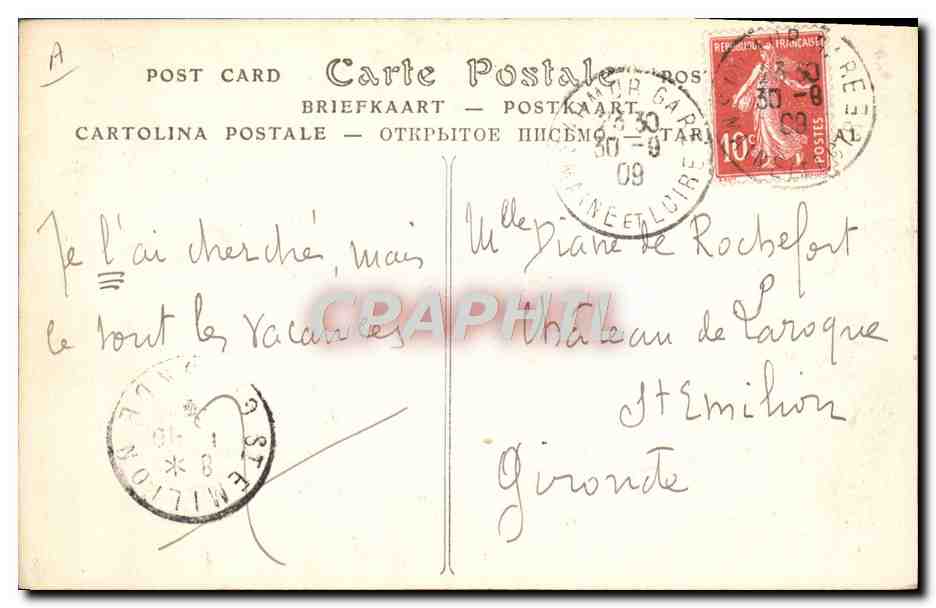 A
POST CARD Carte Postale POS
BRIEFKAART — POSTKAART
CARTOLINA POSTALE — ОТКРЫТОЕ ПИСЬМО — TAR AL
REPUBLIQUE FRANÇAISE
10c POSTES
GARE
23 30
30 - 9
09
MAINE ET LOIRE
23 30
30 - 9
09
Je l'ai cherché, mais
ce sont les vacances
Mlle Diane de Rochefort
Château de Laroque
St Emilion
Gironde
CPAPHIL
ST EMILION
8